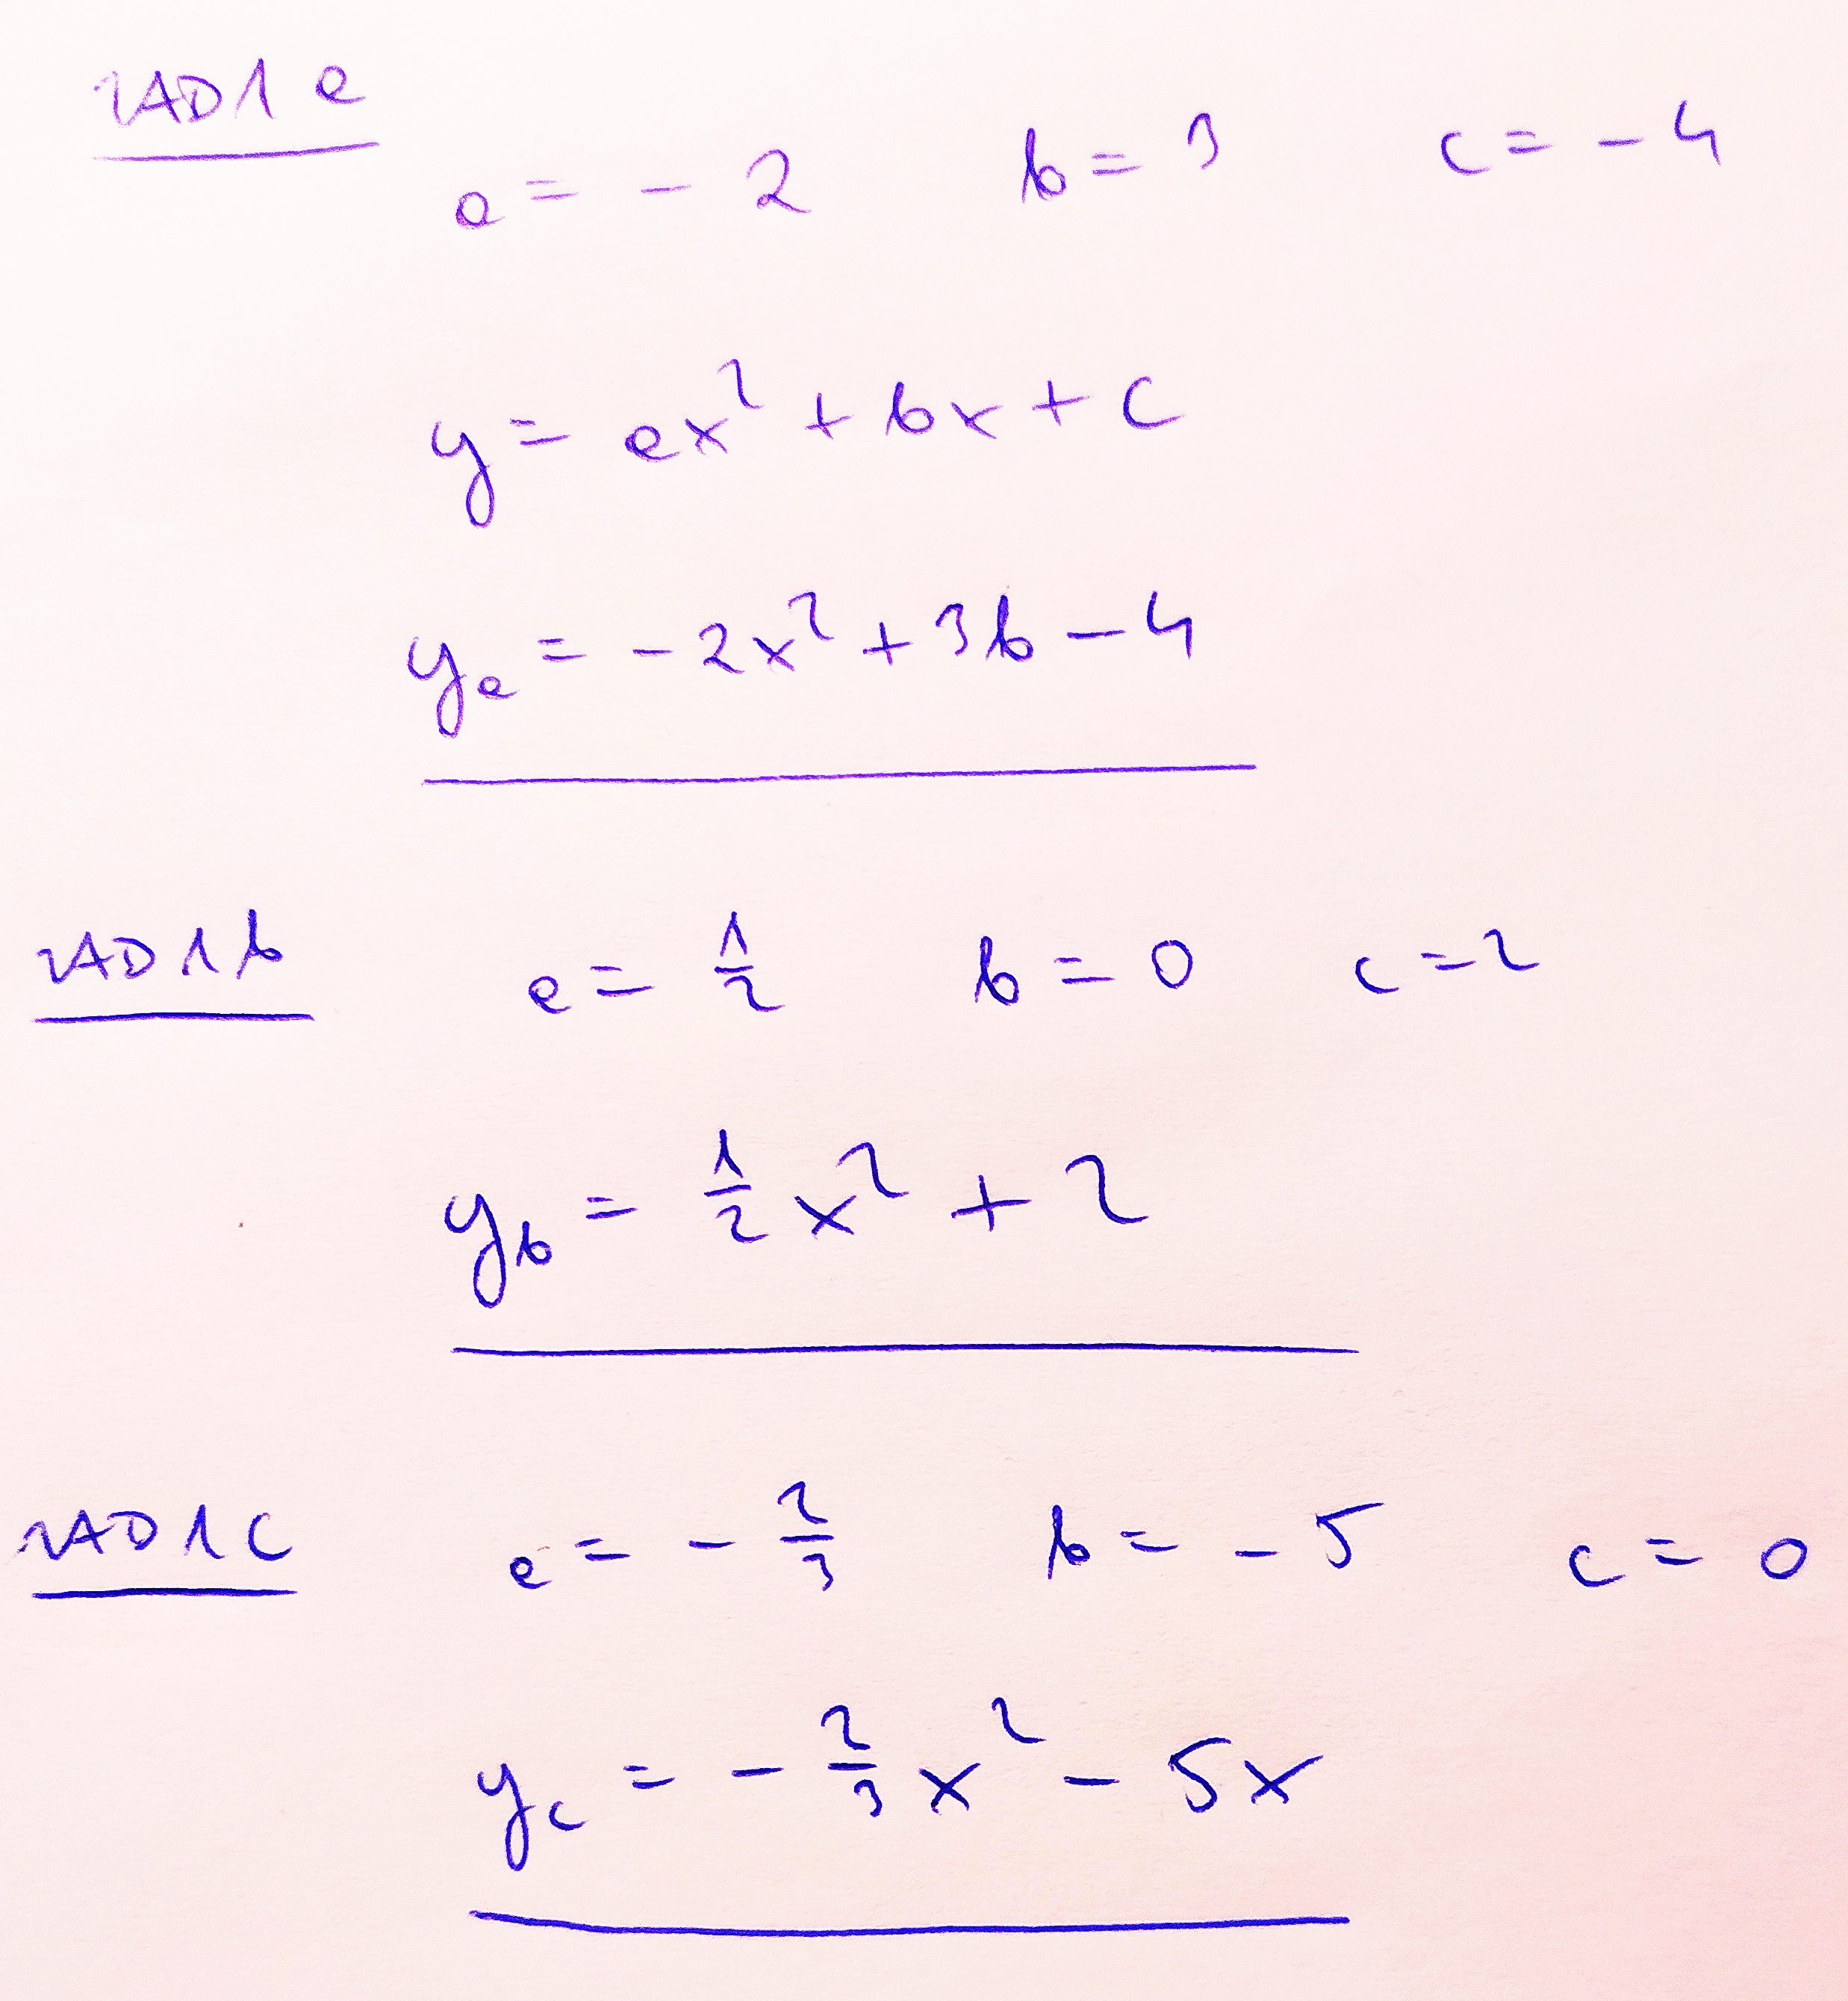 ZAD 1 a
a = - 2 b = 3 c = - 4
y = ax² + bx + c
yₐ = - 2x² + 3b - 4
ZAD 1 b a = 1/2 b = 0 c = 2
y_b = 1/2 x² + 2
ZAD 1 c a = - 2/3 b = - 5 c = 0
y_c = - 2/3 x² - 5x